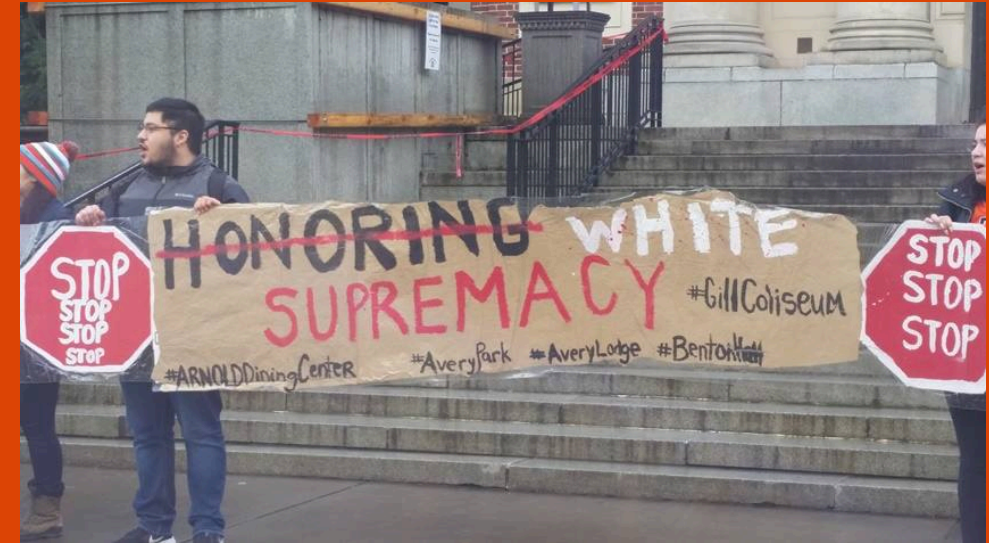 STOP
STOP
STOP
STOP
HONORING WHITE
SUPREMACY #GillColiseum
#ARNOLDDiningCenter #AveryPark #AveryLodge #Benton
STOP
STOP
STOP